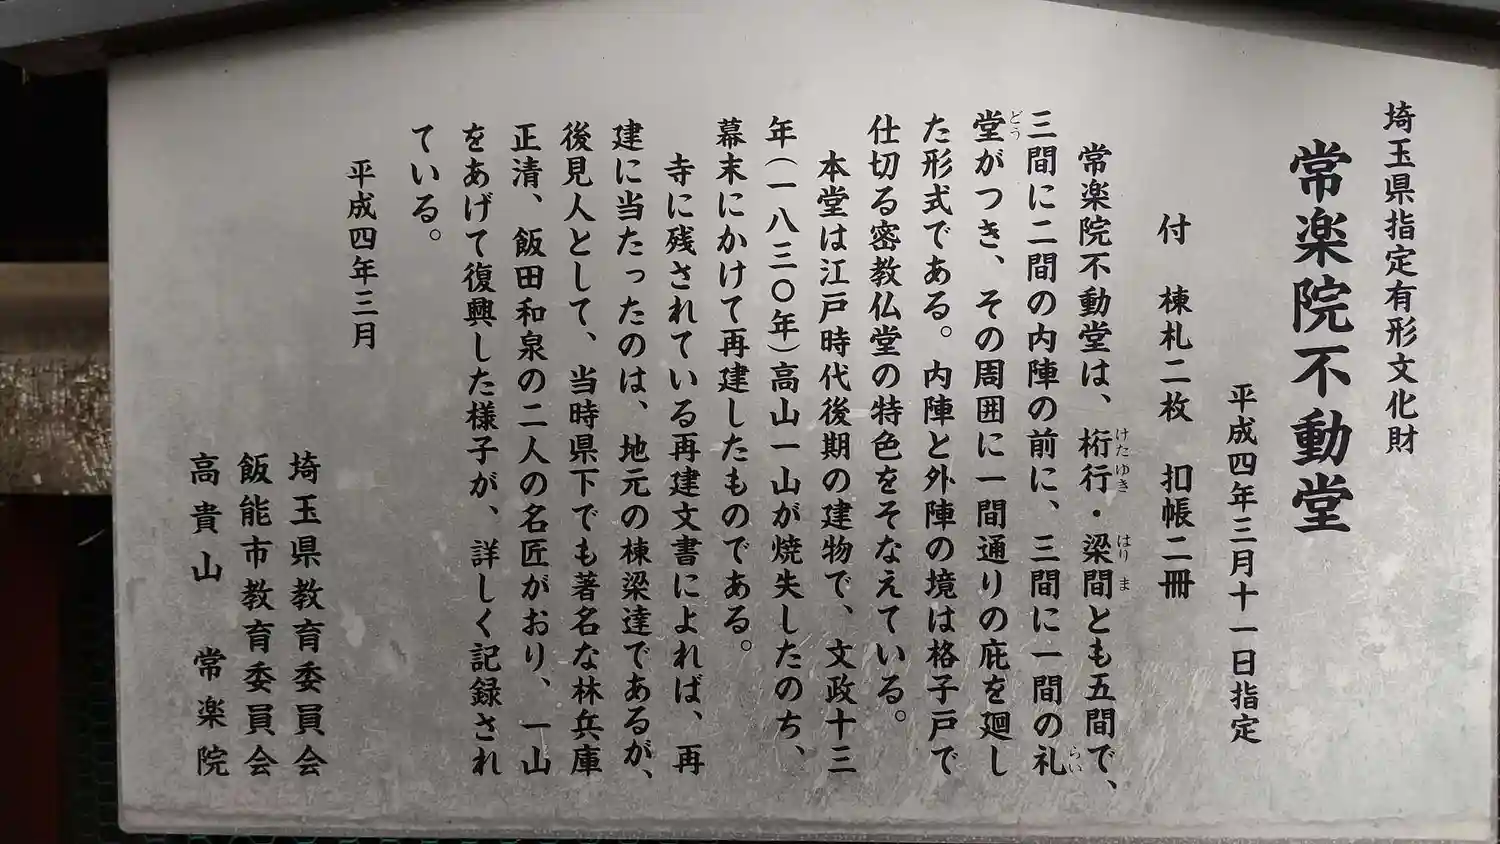 埼玉県指定有形文化財
常楽院不動堂
平成四年三月十一日指定
付　棟札二枚　扣帳二冊
常楽院不動堂は、桁行・梁間とも五間で、
三間に二間の内陣の前に、三間に一間の礼
堂がつき、その周囲に一間通りの庇を廻し
た形式である。内陣と外陣の境は格子戸で
仕切る密教仏堂の特色をそなえている。
本堂は江戸時代後期の建物で、文政十三
年(一八三〇年)高山一山が焼失したのち、
幕末にかけて再建したものである。
寺に残されている再建文書によれば、再
建に当たったのは、地元の棟梁達であるが、
後見人として、当時県下でも著名な林兵庫
正清、飯田和泉の二人の名匠がおり、一山
をあげて復興した様子が、詳しく記録され
ている。
平成四年三月
埼玉県教育委員会
飯能市教育委員会
高貴山　常楽院